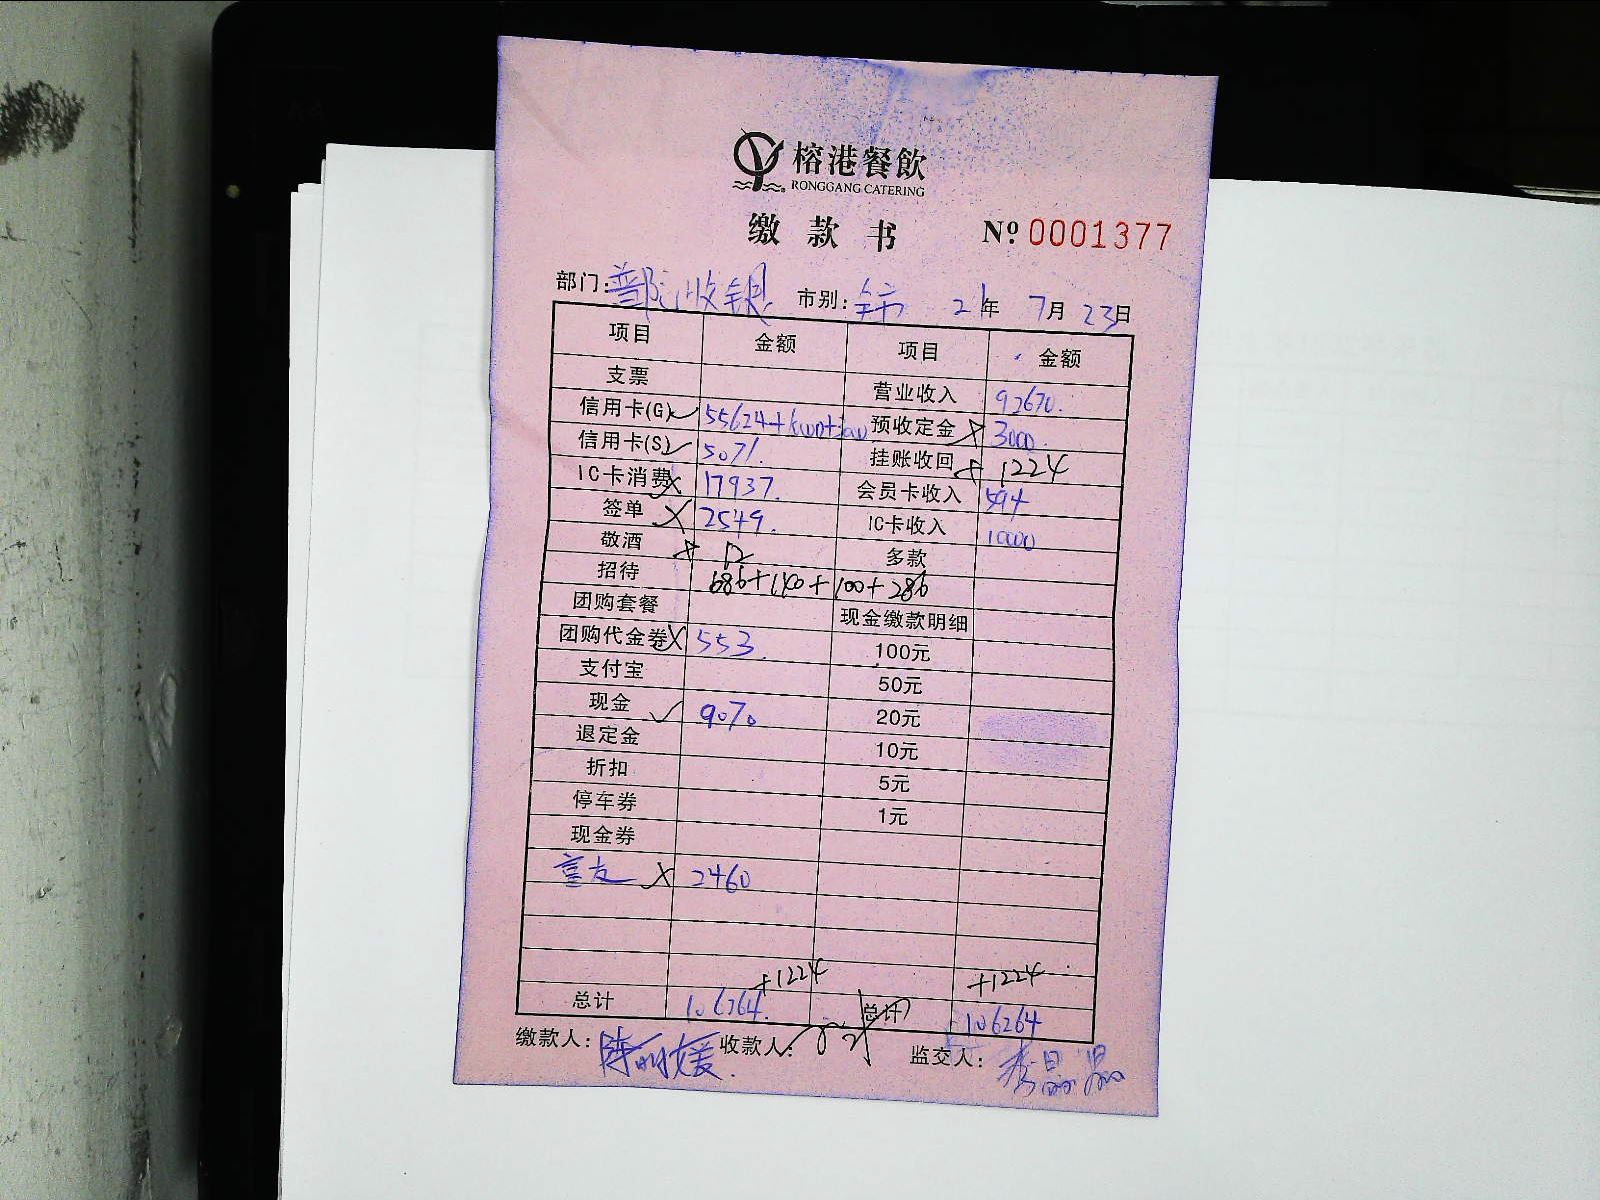 榕港餐飲
RONGGANG CATERING
缴款书 Nº 0001377
部门: 收银 市别: 全市 21年 7月 23日
项目 金额 项目 金额
支票 营业收入 92670.
信用卡(G) 55624+ 预收定金 3000.
信用卡(S) 5071. 挂账收回 + 1224
IC卡消费 17937. 会员卡收入 594
签单 2549. IC卡收入 10000
敬酒 多款
招待 686+ +100+286
团购套餐 现金缴款明细
团购代金券 553. 100元
支付宝 50元
现金 9070 20元
退定金 10元
折扣 5元
停车券 1元
现金券
2460
+1224 +1224
总计 106264. 总计 106264
缴款人: 陈丽媛. 收款人: 监交人: 李晶晶